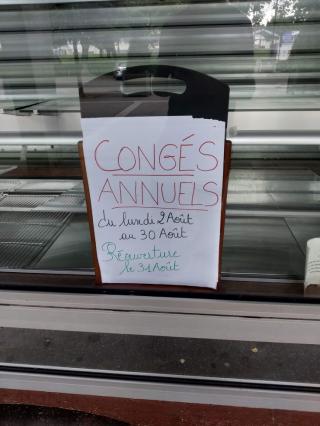 CONGÉS
ANNUELS
du lundi 2 Août
au 30 Août
Réouverture
le 31 Août